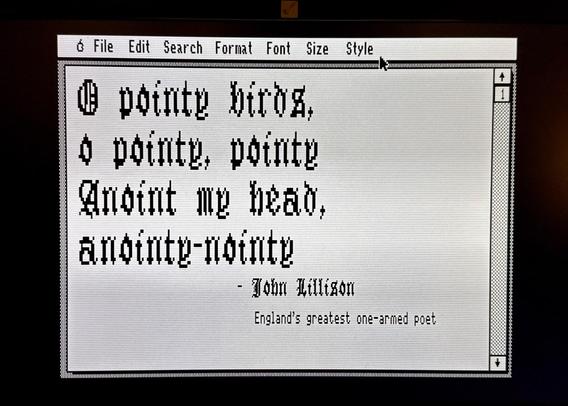 File Edit Search Format Font Size Style
O pointy birds,
o pointy, pointy
Anoint my head,
anointy-nointy
- John Lillison
England's greatest one-armed poet
1